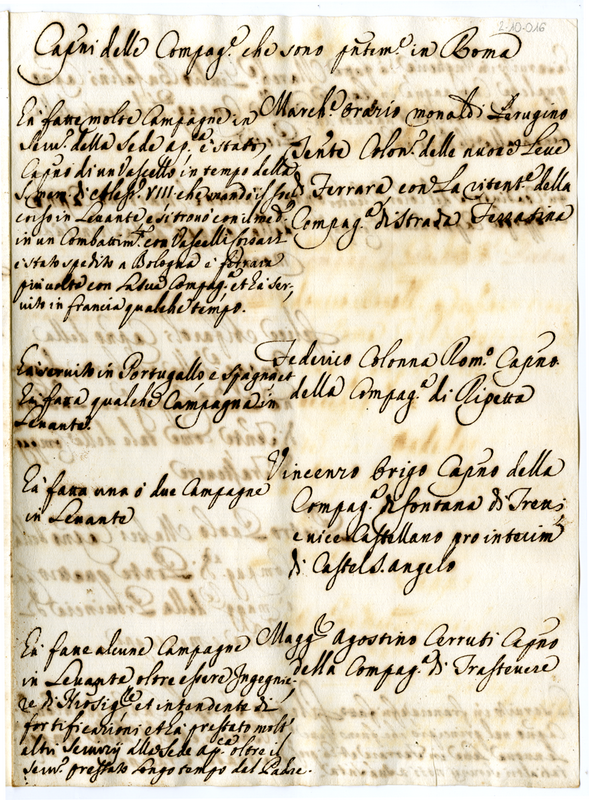 2-10-016
Cap.ni delle Compag.e che sono p.ntem.e in Roma
Ha fatte molte Campagne in
Serv.o della Sede ap.ca è stato
Cap.no di un Vascello in tempo della
di Aless.o VIII che mandò il soc=
corso in Levante e si trovò con il med.o
in un Combattim.to con Vascelli
è stato spedito a Bologna e Ferrara
più volte con la sua Compag.a et ha ser=
vito in francia qualche tempo.
March.e Orazio Monaldi Perugino
Tente Colon.o delle nuove Leve
di Ferrara con la ritent.e della
Compag.a di Strada Ferratina
Ha servito in Portugallo e Spagna et
Ha fatta qualche Campagna in
Levante.
Federico Colonna Rom.o Cap.no
della Compag.a di Ripetta
Ha fatta una ò due Campagne
in Levante
Vincenzo Origo Cap.no della
Compag.a di fontana di Trevi
e vice Castellano pro interim
di Castel S. angelo
Ha fatte alcune Campagne
in Levante oltre essere Ingegnie=
re di et intendente di
fortificazioni et ha prestato molti
altri Servizij alla Sede ap.ca oltre il
Serv.o prestato longo tempo dal Padre.
Magg.re Agostino Cerruti Cap.no
della Compag.a di Trastevere